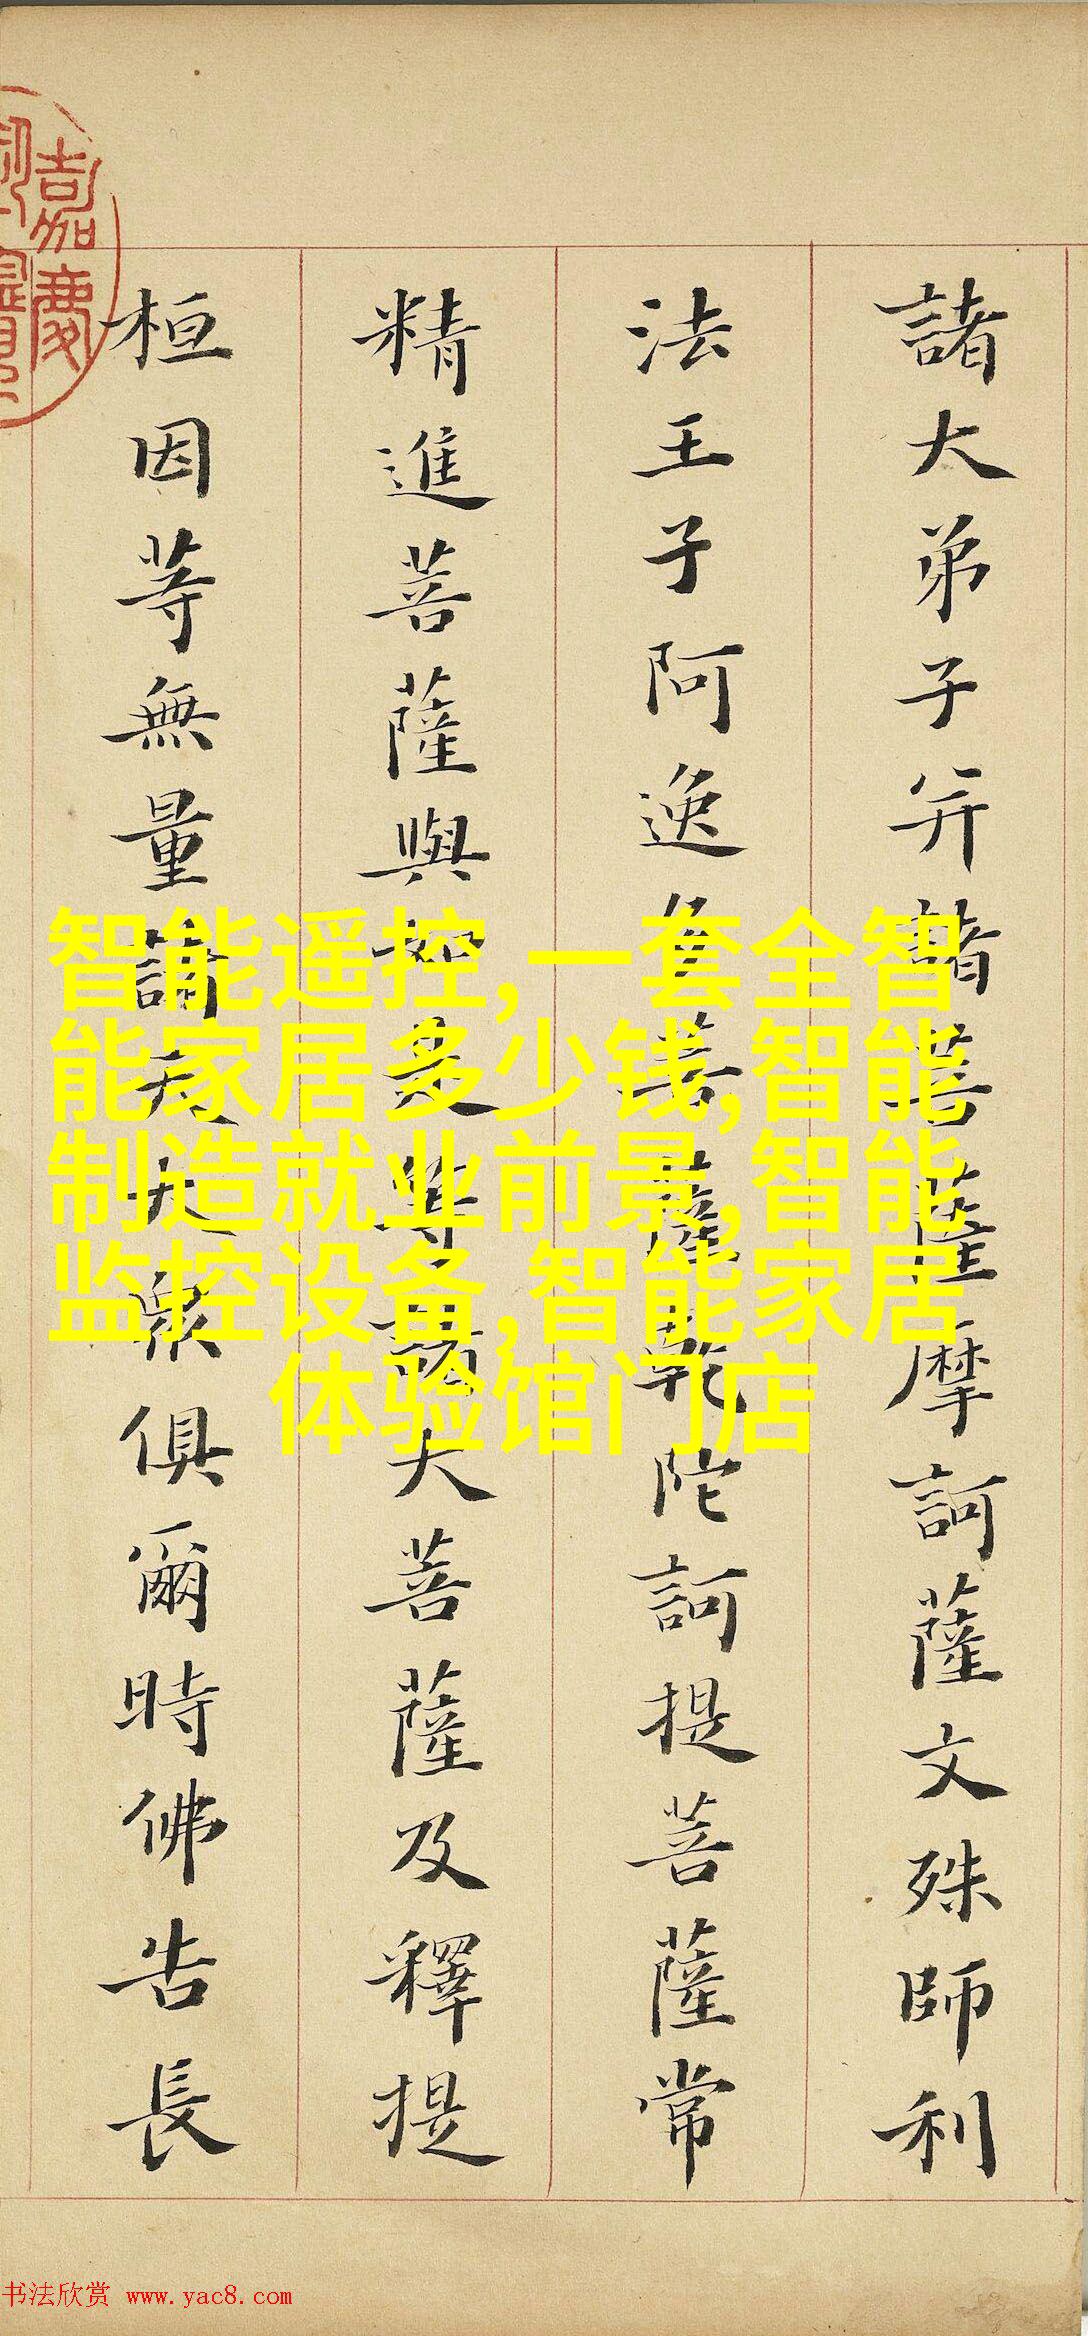 諸大弟子并諸菩薩摩訶薩文殊師利
法王子阿逸多菩薩乾陀訶提菩薩常
精進菩薩與如是等諸大菩薩及釋提
桓因等無量諸天大衆俱爾時佛告長
嘉慶
智能遥控,一套全智
能家居多少钱,智能
制造就业前景,智能
监控设备,智能家居
体验馆门店
书法欣赏 www.yac8.com